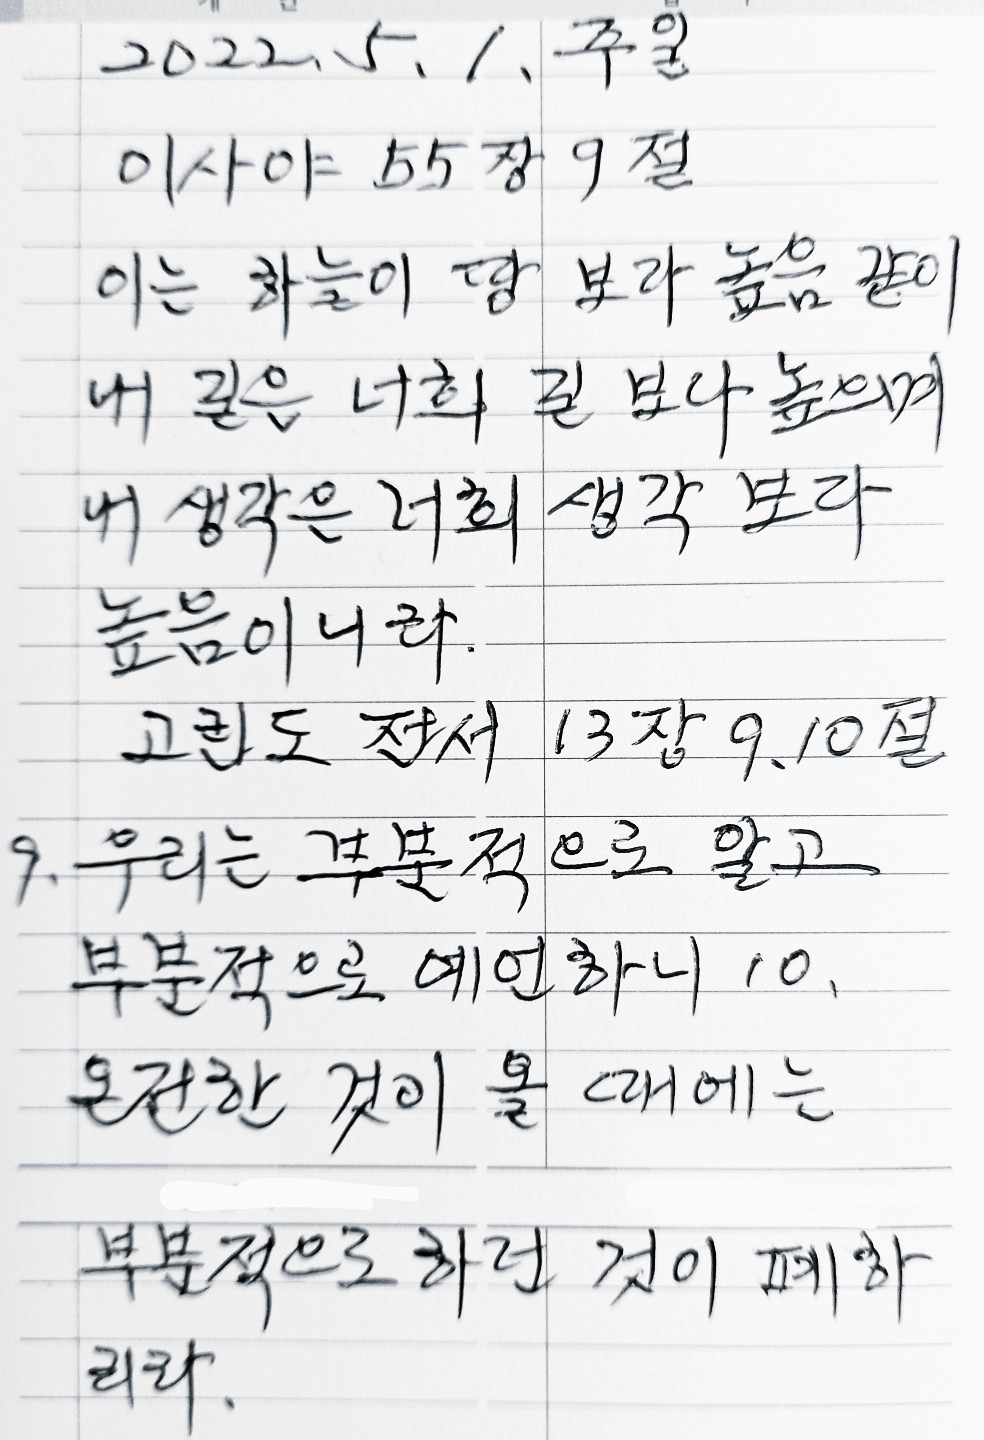 2022. 5. 1. 주일
이사야 55장 9절
이는 하늘이 땅 보다 높음 같이
내 길은 너희 길 보다 높으며
내 생각은 너희 생각 보다
높음이니라.
고린도 전서 13장 9.10절
9. 우리는 부분적으로 알고
부분적으로 예언하니 10.
온전한 것이 올 때에는
부분적으로 하던 것이 폐하
리라.